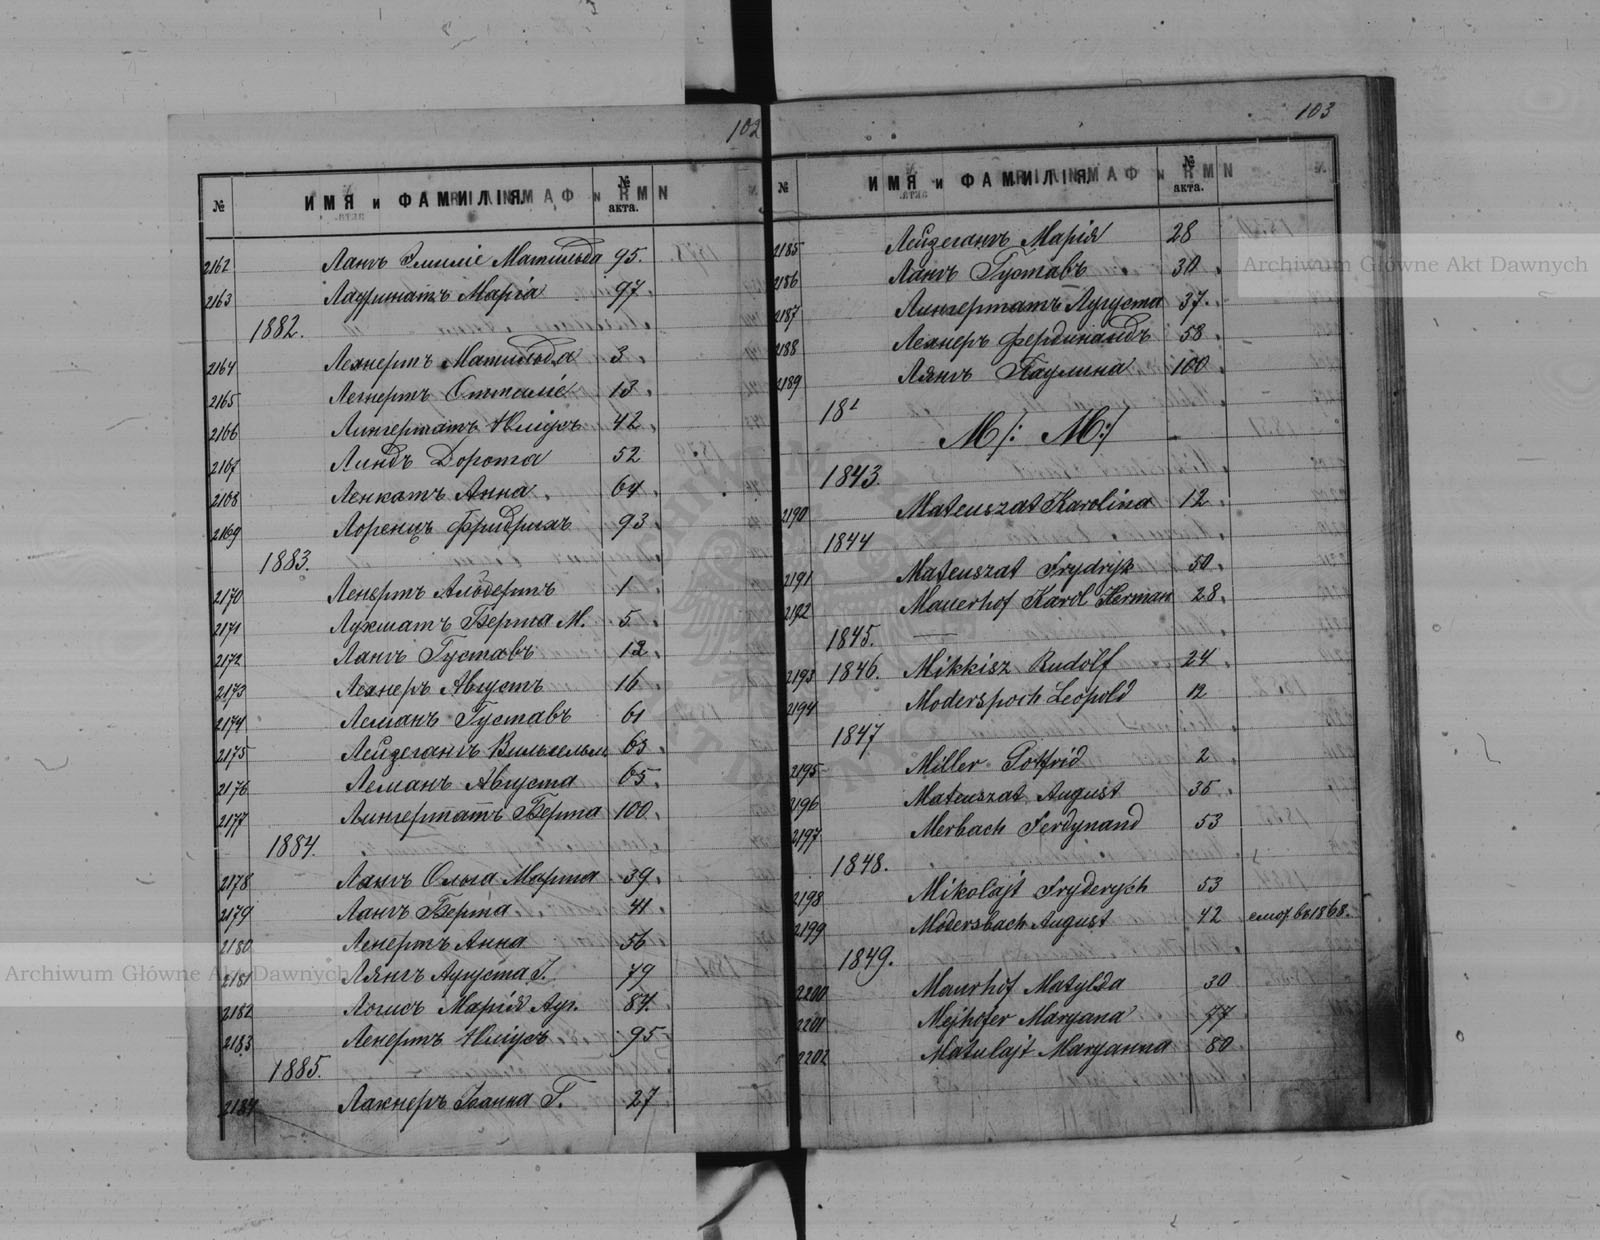 102
№ ИМЯ и ФАМИЛІЯ. № акта.
2162 Лангъ Эмиліе Матильда 95.
2163 Лауринатъ Марія 97.
1882.
2164 Лехнертъ Матильда 3.
2165 Легнертъ Оттиліе 13.
2166 Лингертатъ Юліусъ 42.
2167 Линдъ Дорота 52
2168 Ленкатъ Анна. 64.
2169 Лоренцъ Фридрихъ 93.
1883.
2170 Ленертъ Альбертъ 1.
2171 Лукшатъ Берта М. 5.
2172 Лангъ Густавъ 12.
2173 Лехнеръ Августъ 16
2174 Леманъ Густавъ 61
2175 Лейзегангъ Вильгельм 63.
2176 Леманъ Августа 65.
2177 Лингертатъ Берта 100.
1884.
2178 Лангъ Ольга Марта 39.
2179 Лангъ Берта. 41.
2180 Ленертъ Анна 56
2181 Лянгъ Аугуста І. 79
2182 Логисъ Марія Ауг. 84.
2183 Ленертъ Юліусъ 95
1885.
2184 Лакнеръ Іоанна Г. 27
103
№ ИМЯ и ФАМИЛІЯ. № акта.
2185 Лейзегангъ Марія 28
2186 Лангъ Густавъ 30.
2187 Лингертатъ Аугуста 37.
2188 Лехнеръ Фердинандъ 58.
2189 Лянгъ Паулина 100.
18
M/: М:/
1843.
2190 Mateuszat Karolina 12.
1844
2191 Mateuszat Frydryk 50.
2192 Mauerhof Karol Herman 28.
1845. —
2193 1846. Mikkisz Rudolf 24.
2194 Moderspoch Leopold 12
1847
2195 Miller Gotfrid 2
2196 Mateuszat August 35.
2197 Merbach Ferdynand 53
1848.
2198 Mikolajt Fryderych 53
2199 Modersbach August 42 смот. въ 1868.
1849.
2200 Maurhof Matylda 30
2201 Mejhofer Maryana 77
2202 Matulajt Maryanna 80.
Archiwum Główne Akt Dawnych
Archiwum Główne Akt Dawnych